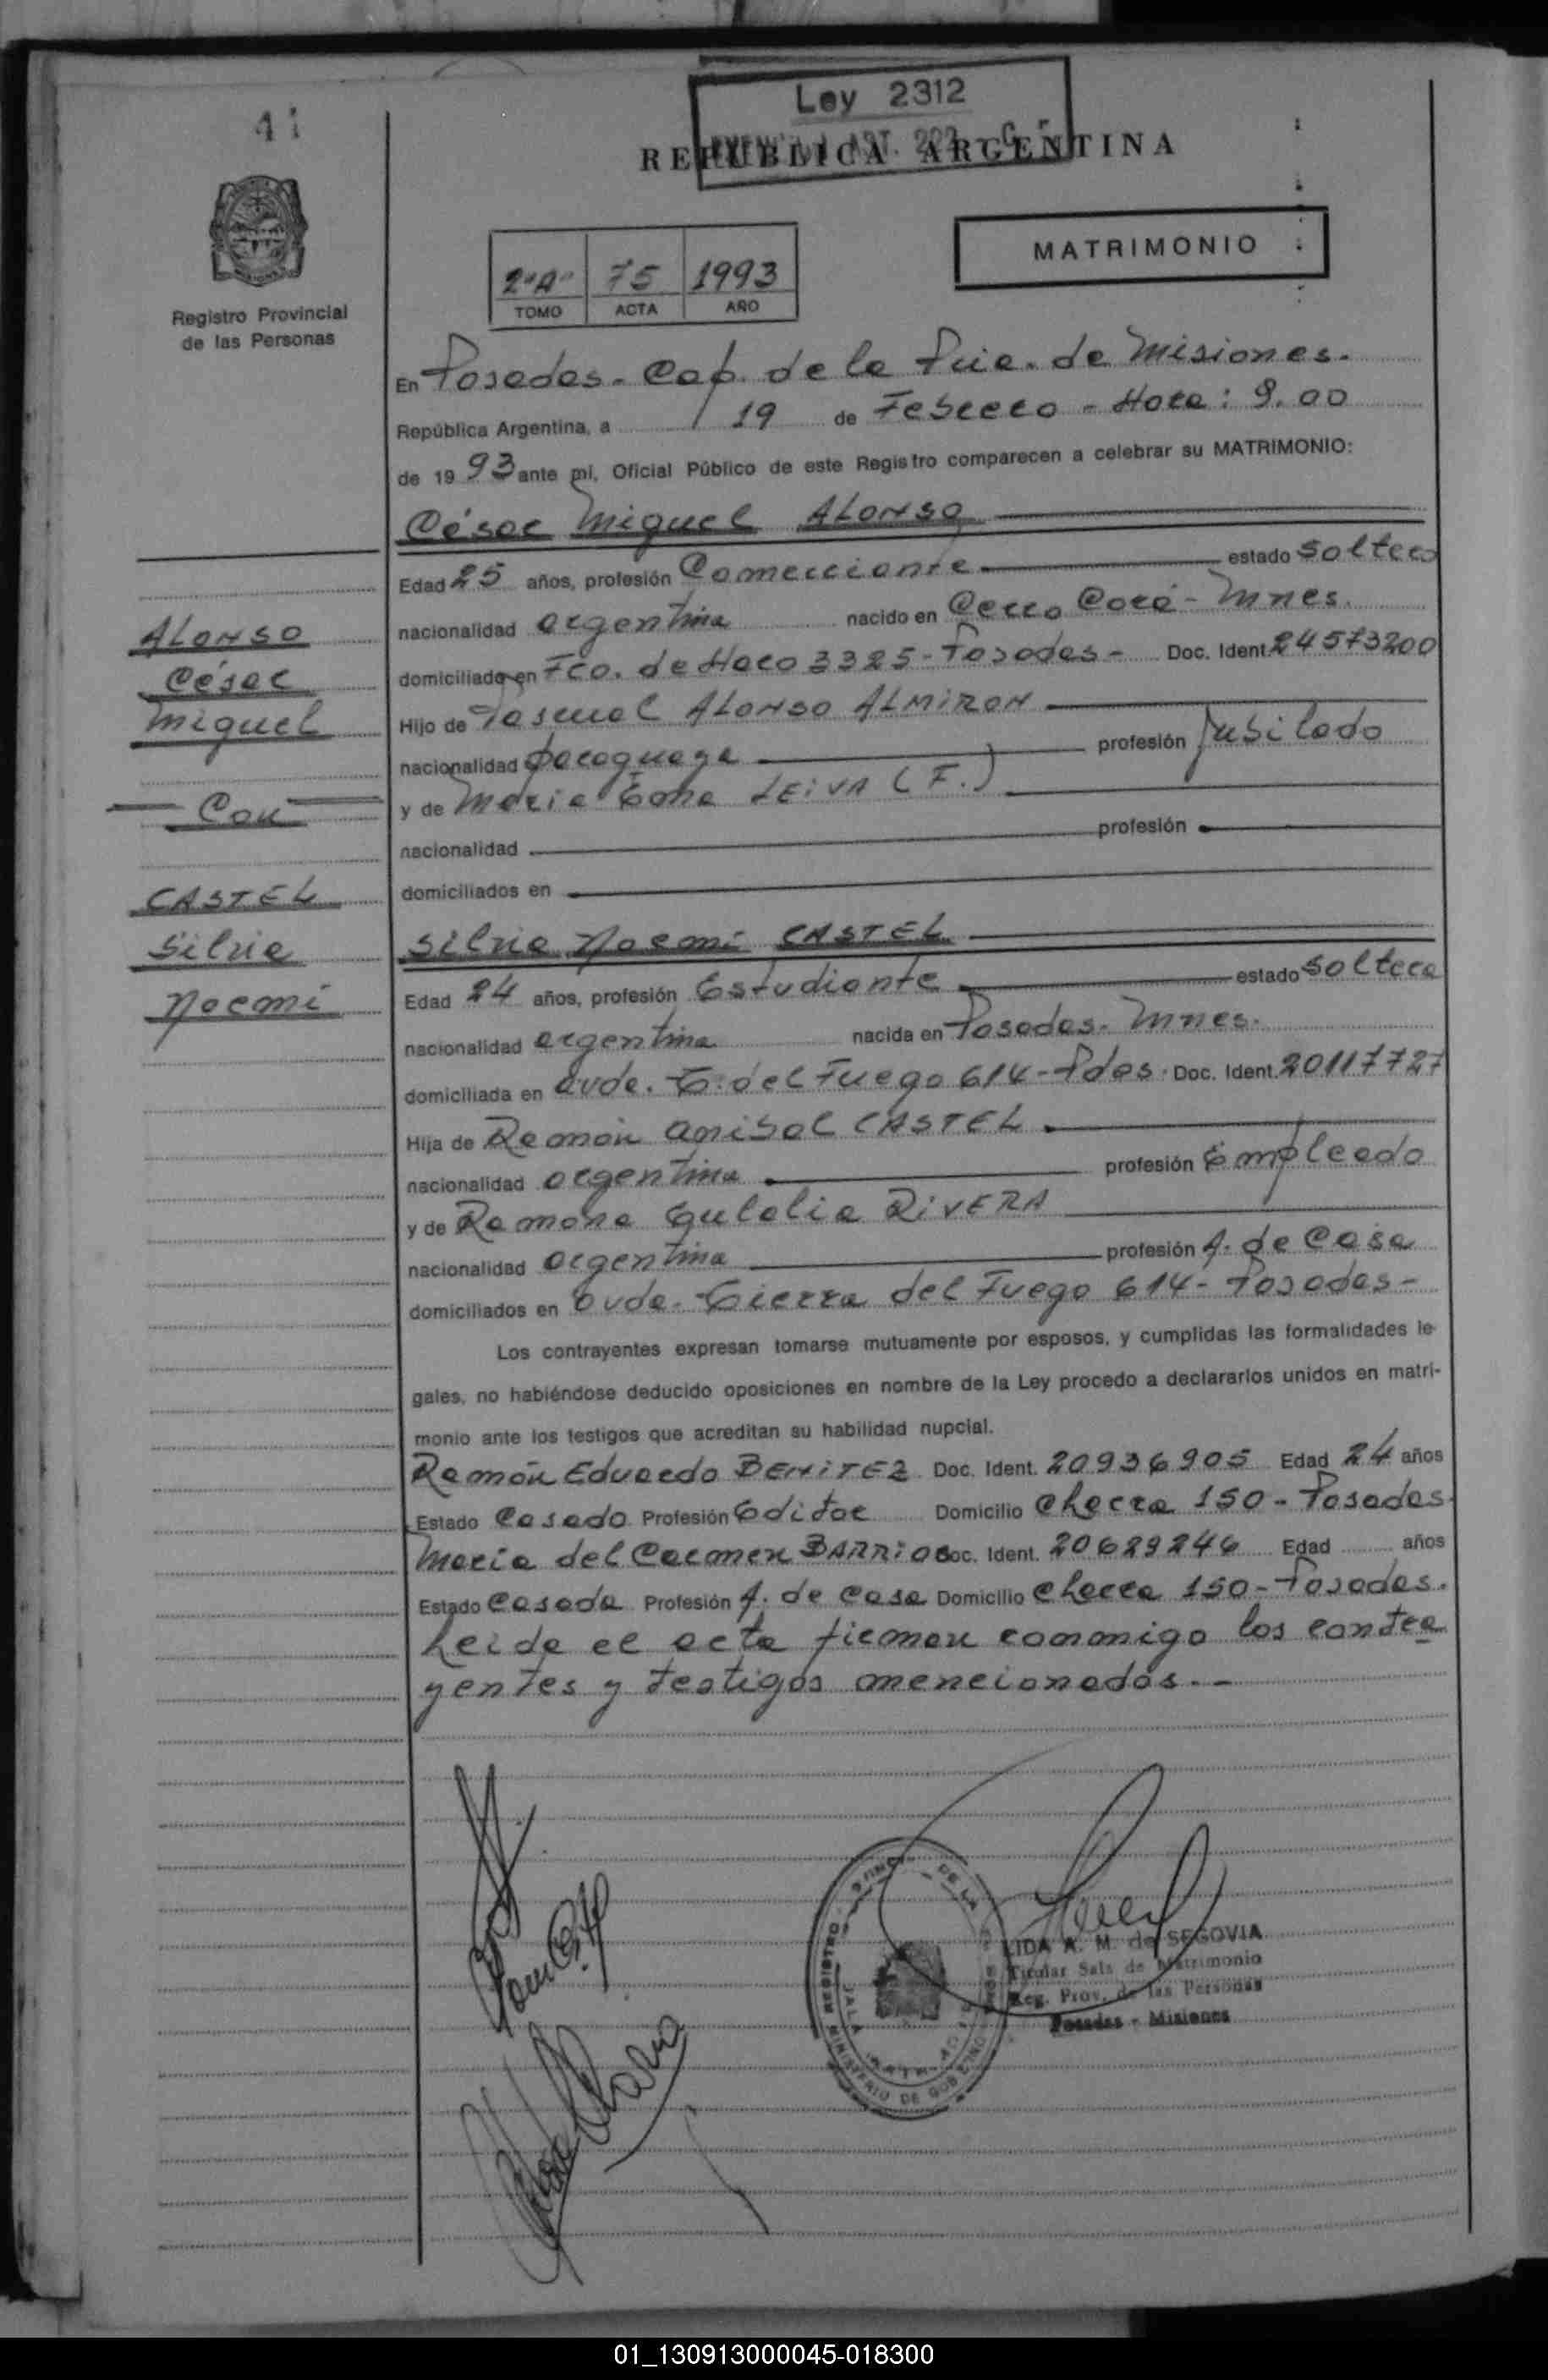 41
Ley 2312
REPUBLICA ARGENTINA
MATRIMONIO
2ª"A" 75 1993
TOMO ACTA AÑO
Registro Provincial
de las Personas
En Posadas. Cap. de la Pcia. de Misiones.
República Argentina, a 19 de Febrero - Hora: 9.00
de 19 93 ante mí, Oficial Público de este Registro comparecen a celebrar su MATRIMONIO:
César Miguel ALONSO
Edad 25 años, profesión Comerciante estado Soltero
nacionalidad argentina nacido en Cerro Corá - Mnes.
domiciliado en Fco. de Haro 3325 - Posadas - Doc. Ident. 24573200
Hijo de Pascual ALONSO ALMIRON
nacionalidad paraguaya profesión Jubilado
y de María LEIVA (F.)
nacionalidad profesión
domiciliados en
Silvia Noemí CASTEL
Edad 24 años, profesión Estudiante estado Soltera
nacionalidad argentina nacida en Posadas. Mnes.
domiciliada en avda. T. del Fuego 614 - Pdas. Doc. Ident. 20117727
Hija de Ramón Anibal CASTEL
nacionalidad argentina profesión Empleado
y de Ramona Eulalia RIVERA
nacionalidad argentina profesión A. de Casa
domiciliados en avda. Tierra del Fuego 614 - Posadas -
Los contrayentes expresan tomarse mutuamente por esposos, y cumplidas las formalidades le-
gales, no habiéndose deducido oposiciones en nombre de la Ley procedo a declararlos unidos en matri-
monio ante los testigos que acreditan su habilidad nupcial.
Ramón Eduardo BENITEZ Doc. Ident. 20936905 Edad 24 años
Estado Casado Profesión Editor Domicilio Chacra 150 - Posadas.
María del Carmen BARRIOS Doc. Ident. 20629246 Edad años
Estado Casada Profesión A. de casa Domicilio Chacra 150 - Posadas.
Leida el acta firman conmigo los contra
yentes y testigos mencionados. -
ALONSO
César
Miguel
Con
CASTEL
Silvia
Noemí
LIDA A. M. de SEGOVIA
Titular Sala de Matrimonio
Reg. Prov. de las Personas
Posadas - Misiones
MINISTERIO DE GOBIERNO
01_130913000045-018300